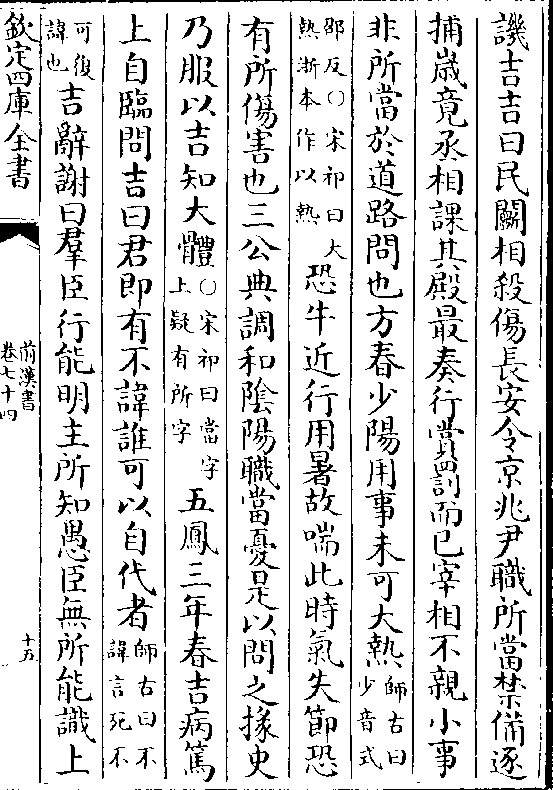 譏吉吉曰民鬭相殺傷長安令京兆尹職所當禁備逐
捕歲竟丞相課其殿最奏行賞罰而已宰相不親小事
非所當於道路問也方春少陽用事未可大熱師古曰少音式
邵反○宋祁曰大熱浙本作以熱恐牛近行用暑故喘此時氣失節恐
有所傷害也三公典調和陰陽職當憂是以問之掾史
乃服以吉知大體○宋祁曰當字上疑有所字五鳳三年春吉病篤
上自臨問吉曰君即有不諱誰可以自代者師古曰不諱言死不
可復諱也吉辭謝曰羣臣行能明主所知愚臣無所能識上
欽定四庫全書
前漢書
卷七十四
十五